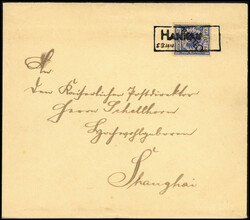 HANKAU
An
den Kaiserlichen Postdirektor
Herrn Schellhorn
Hochwohlgeboren
Shanghai